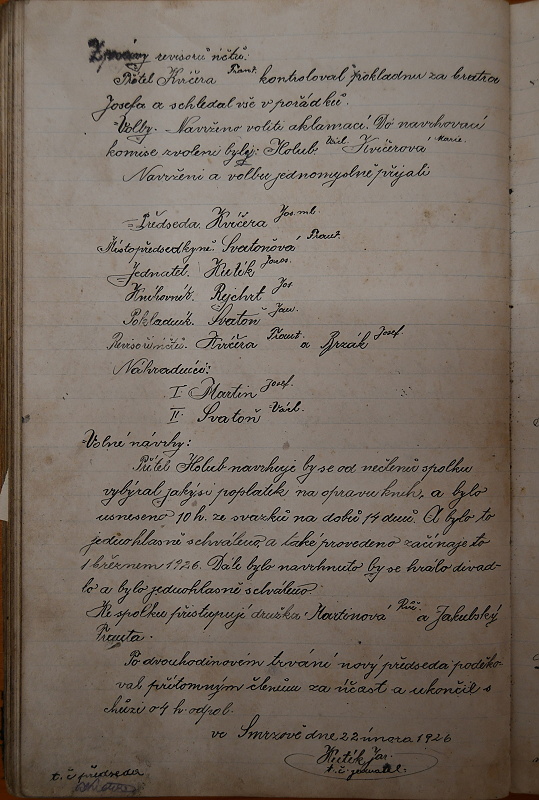 Zprávy revisorů účtů:
Přítel Kvičera Frant. kontroloval pokladnu za bratra
Josefa a schledal vše v pořádků.
Volby. Navrženo voliti aklamací. Do navrhovací
komise zvoleni byly: Holub Václ. Kvičerova Marie.
Navrženi a volbu jednomyslně přijali
Předseda. Kvičera Jos. ml.
Místopředsedkyně. Svatoňová Frant.
Jednatel. Kuťík Jaros.
Knihovník. Rejchrt Jos
Pokladník. Svatoň Jan.
Revisoři účtů. Kvičera Frant. a Brzák Josef.
Náhradníci:
I Martin Josef.
II. Svatoň Václ.
Volné návrhy:
Přítel Holub navrhuje by se od nečlenů spolku
vybýral jakýsi poplatek na opravu knih, a bylo
usneseno 10 h. ze svazků na dobů 14 dnů. A bylo to
jednohlasně schváleno, a také provedeno začínaje to
1 březnem 1926. Dále bylo navrhnuto by se hrálo divad-
lo a bylo jednohlasně schváleno.
Ke spolku přistupují družka Martinová Růž. a Jakubský
Franta.
Po dvouhodinovém trváni nový předseda poděko-
val přítomným členům za účast a ukončil s
chůzi o 4 h. odpol.
ve Smrzově dne 22 února 1926
Kuťík Jar.
t. č. jednatel.
t. č. předseda